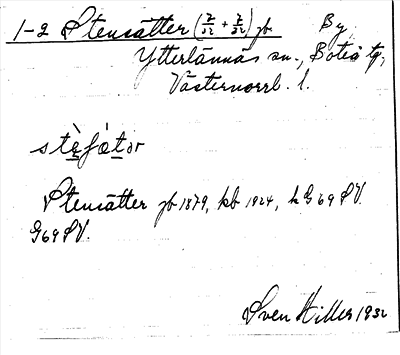 1-2 Stensätter (7/32 + 7/32) jb By
Ytterlännäs sn., Boteå tg,
Västernorrl. l.
stèfàtər
Stensätter jb 1879, kb 1924, h G 69 SV.
G 69 SV.
Sven Hiller 1932